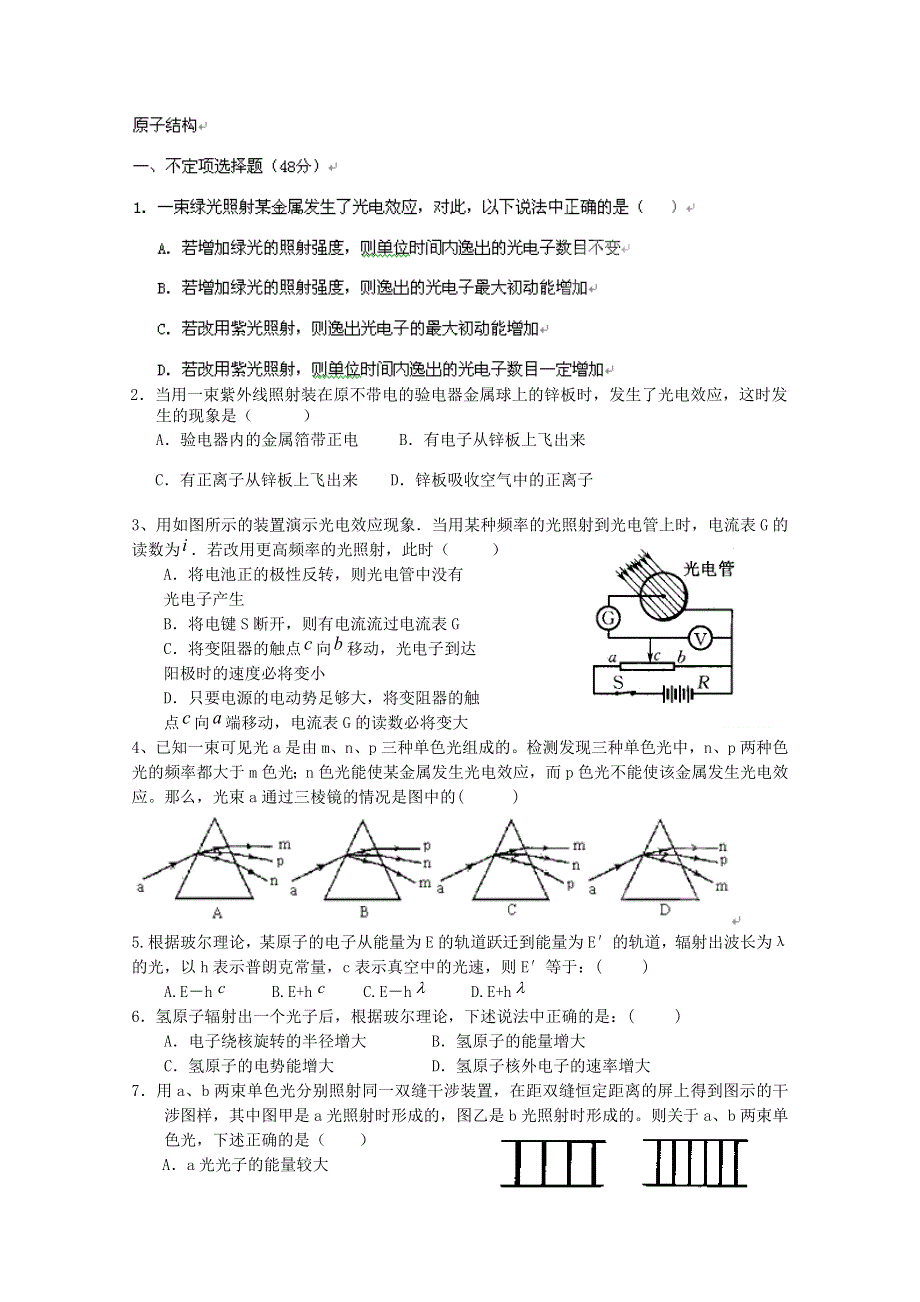 原子结构
一、不定项选择题（48分）
1. 一束绿光照射某金属发生了光电效应，对此，以下说法中正确的是（ ）
A. 若增加绿光的照射强度，则单位时间内逸出的光电子数目不变
B. 若增加绿光的照射强度，则逸出的光电子最大初动能增加
C. 若改用紫光照射，则逸出光电子的最大初动能增加
D. 若改用紫光照射，则单位时间内逸出的光电子数目一定增加
2．当用一束紫外线照射装在原不带电的验电器金属球上的锌板时，发生了光电效应，这时发
生的现象是（ ）
A．验电器内的金属箔带正电 B．有电子从锌板上飞出来
C．有正离子从锌板上飞出来 D．锌板吸收空气中的正离子
3、用如图所示的装置演示光电效应现象．当用某种频率的光照射到光电管上时，电流表 G 的
读数为i．若改用更高频率的光照射，此时（ ）
A．将电池正的极性反转，则光电管中没有
光电子产生
B．将电键 S 断开，则有电流流过电流表 G
C．将变阻器的触点c向b移动，光电子到达
阳极时的速度必将变小
D．只要电源的电动势足够大，将变阻器的触
点c向a端移动，电流表 G 的读数必将变大
光电管
G
V
a c b
S R
4、已知一束可见光 a 是由 m、n、p 三种单色光组成的。检测发现三种单色光中，n、p 两种色
光的频率都大于 m 色光；n 色光能使某金属发生光电效应，而 p 色光不能使该金属发生光电效
应。那么，光束 a 通过三棱镜的情况是图中的( )
a m p n A
a p n m B
a m n p C
a n p m D
5.根据玻尔理论，某原子的电子从能量为 E 的轨道跃迁到能量为 E′的轨道，辐射出波长为 λ
的光，以 h 表示普朗克常量，c 表示真空中的光速，则 E′等于：( )
A.E－h c B.E+h c C.E－h λ D.E+h λ
6．氢原子辐射出一个光子后，根据玻尔理论，下述说法中正确的是：( )
A．电子绕核旋转的半径增大 B．氢原子的能量增大
C．氢原子的电势能增大 D．氢原子核外电子的速率增大
7．用 a、b 两束单色光分别照射同一双缝干涉装置，在距双缝恒定距离的屏上得到图示的干
涉图样，其中图甲是 a 光照射时形成的，图乙是 b 光照射时形成的。则关于 a、b 两束单
色光，下述正确的是（ ）
A．a 光光子的能量较大